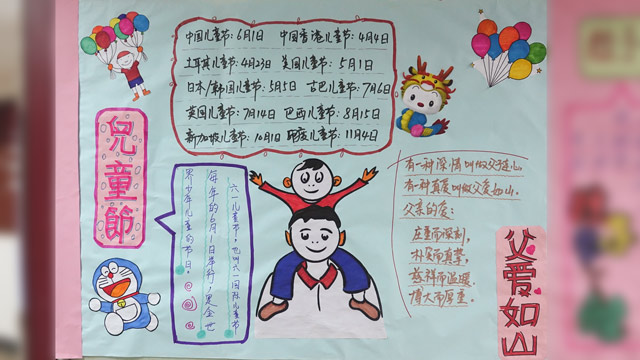 中国儿童节:6月1日 中国香港儿童节:4月4日
土耳其儿童节:4月23日 美国儿童节:5月1日
日本/韩国儿童节:5月5日 古巴儿童节:7月6日
英国儿童节:7月14日 巴西儿童节:8月15日
新加坡儿童节:10月1日 印度儿童节:11月4日
兒童節
六一儿童节,也叫六一国际儿童节
每年的6月1日举行,是全世
界少年儿童的节日
有一种深情叫做父子连心。
有一种真爱叫做父爱如山。
父亲的爱:
庄重而深刻,
朴实而真挚,
慈祥而温暖,
博大而厚重。
父爱如山